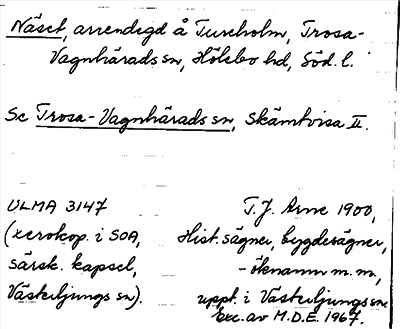 Näset, arrendegd å Tureholm, Trosa-
Vagnhärads sn, Hölebo hd, Söd. l.
Se Trosa-Vagnhärads sn, Skämtvisa II.
ULMA 3147 T. J. Arne 1900,
(xerokop. i SOA, Hist. sägner, bygdesägner,
särsk. kapsel, -öknamn m.m.,
Västerljungs sn). uppt. i Västerljungs sn.
exc. av M.D.E. 1967.